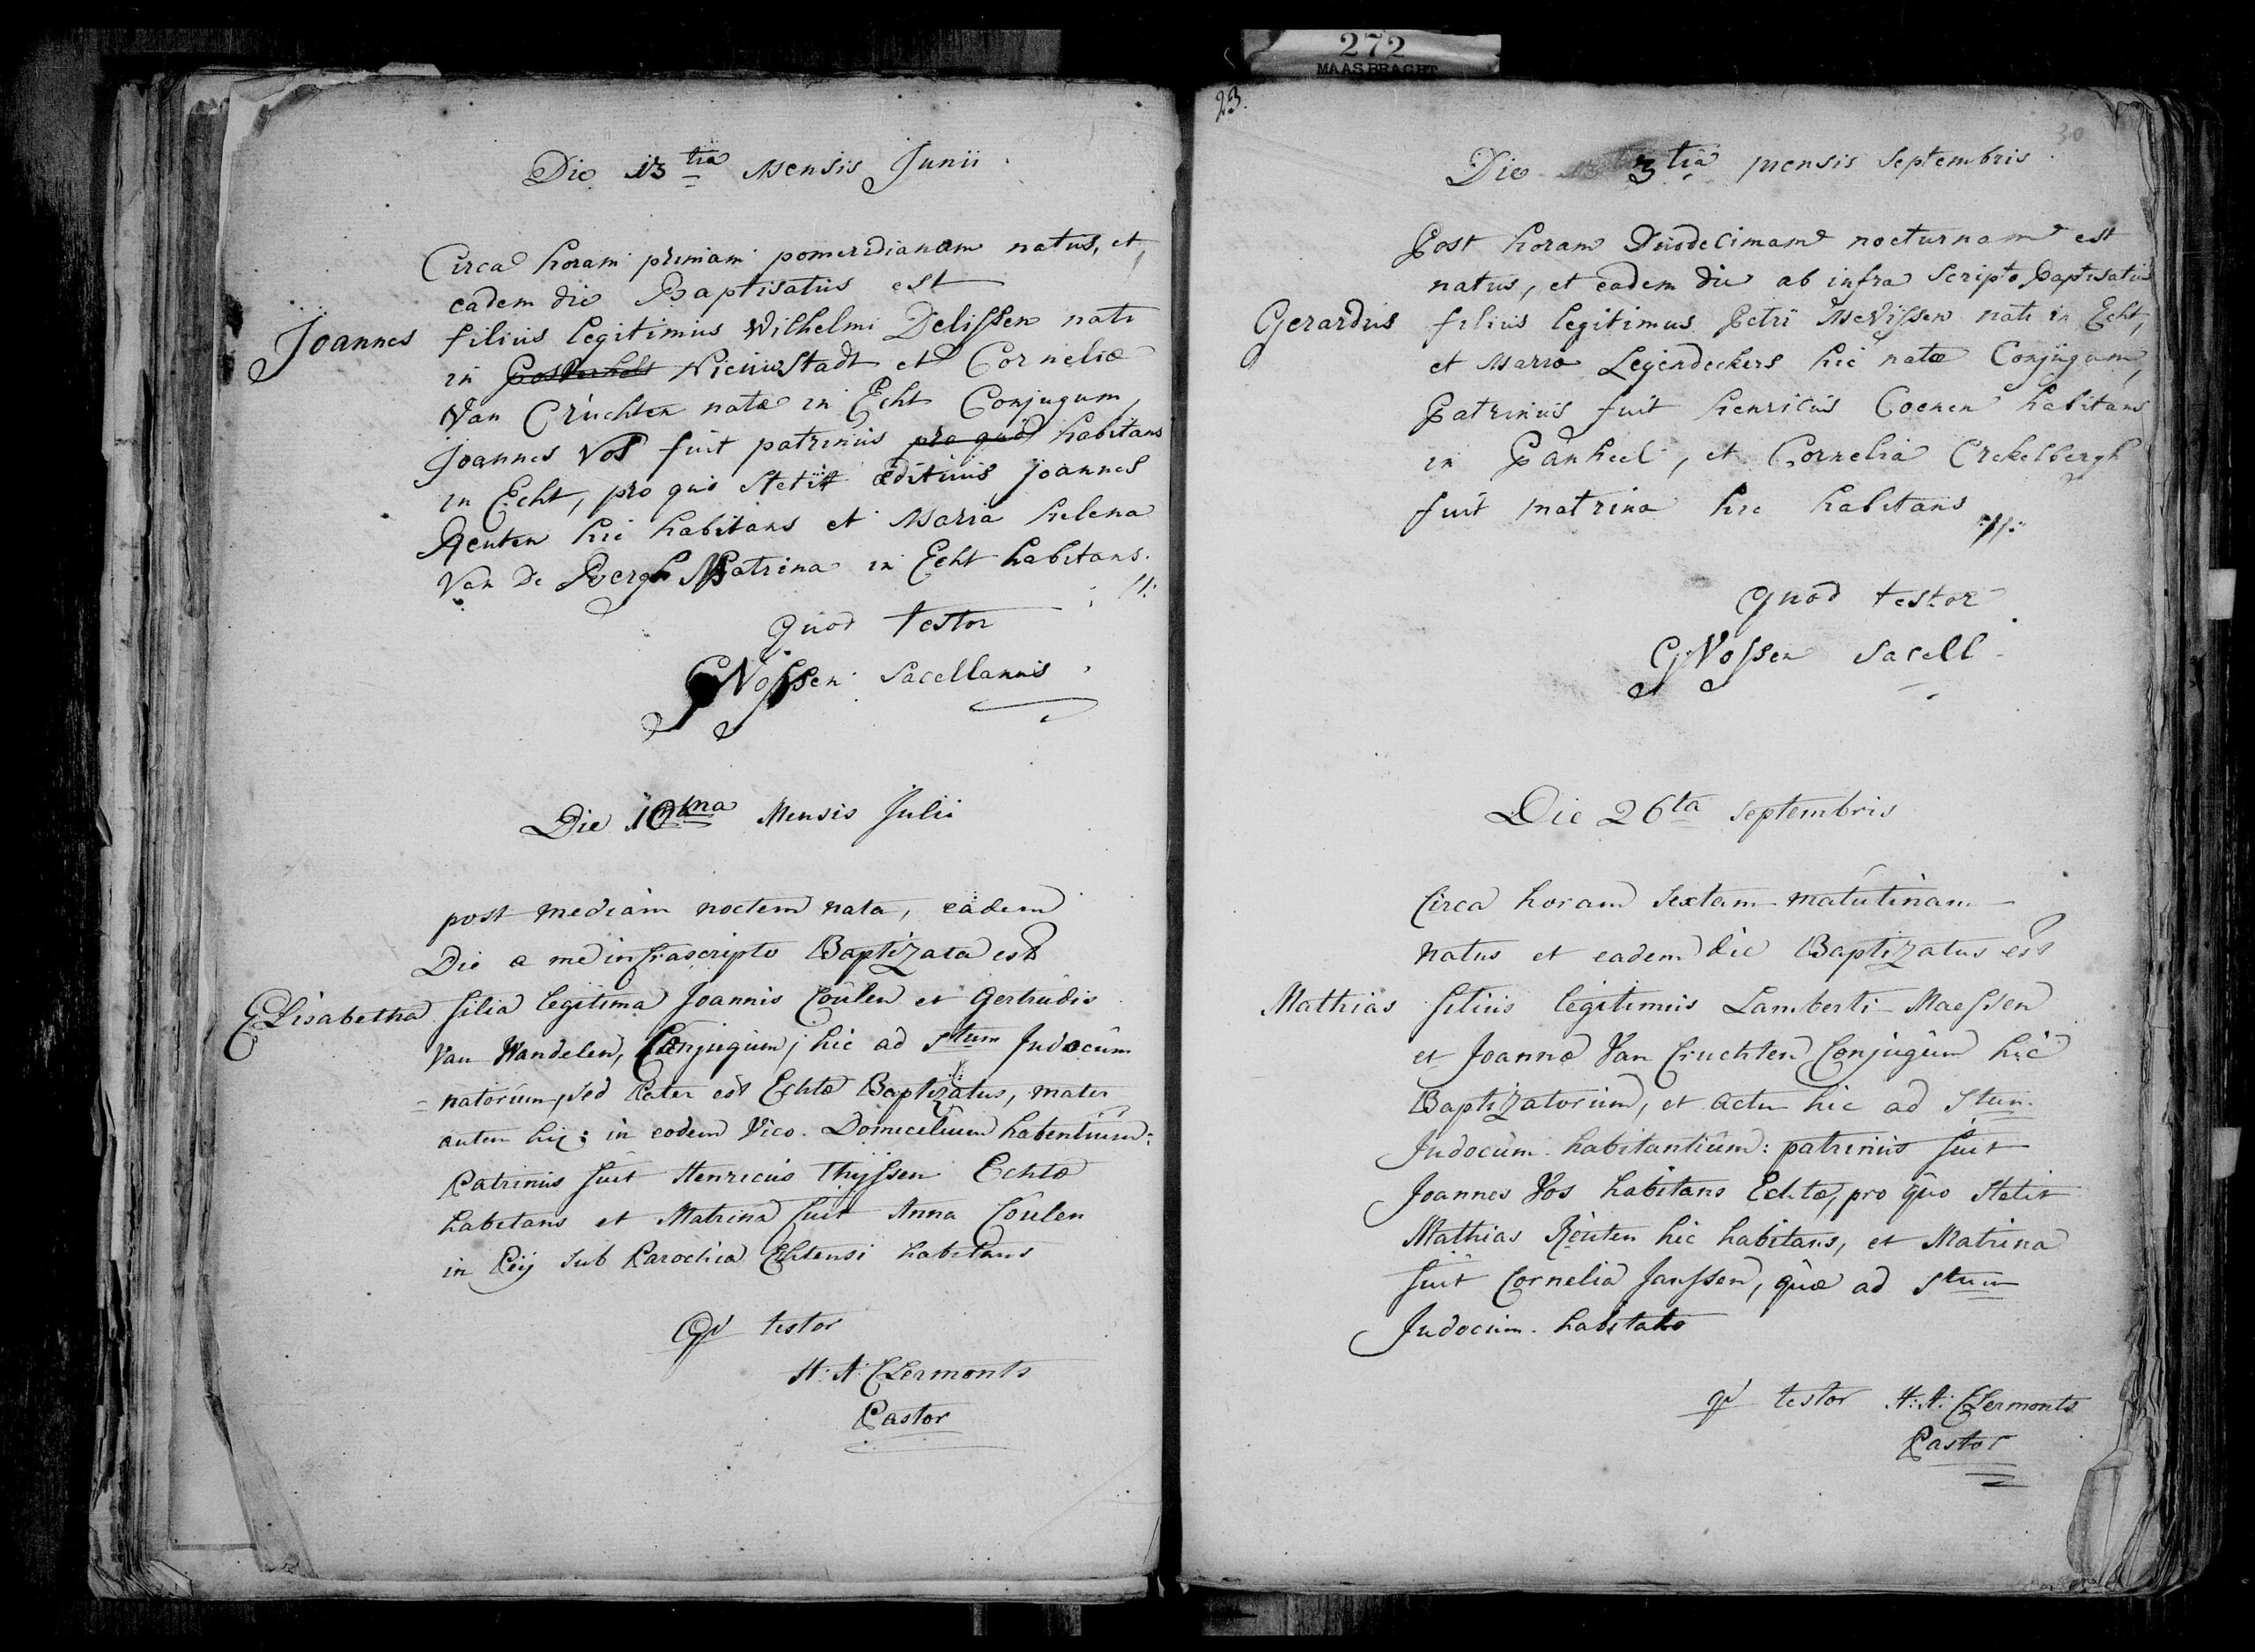 272
MAASBRACHT
Die 13tia Mensis Junii
Circa horam primam pomeridianam natus, et
eadem die Baptisatus est
Joannes filius legitimus Wilhelmi Delissen nati
in Posterholt Nieuwstadt et Corneliæ
Van Cruchten natæ in Echt Conjugum,
Joannes Vos fuit patrinus pro quo habitans
in Echt, pro quo stetit ædituus Joannes
Reuten hic habitans et Maria helena
Van De Bergh Matrina in Echt habitans.
quod testor
G Nossen Sacellanus
Die 10ma Mensis Julii
post mediam noctem nata, eadem
Die a me infrascripto Baptizata est
Elisabetha filia legitima Joannis Coulen et Gertrudis
Van Wandelen, Conjugum, hic ad Stum Judocum
natorum, sed Pater est Echtæ Baptizatus, mater
autem hic: in eodem Vico Domicilium habentium:
Patrinus fuit Henricus Thyssen Echtæ
habitans et Matrina fuit Anna Coulen
in Peij sub Parochia Echtensi habitans
qd testor
H: A: Clermonts
Pastor
23.
30
Die 3tia mensis Septembris
Post horam Duodecimam nocturnam est
natus, et eadem die ab infra scripto Baptisatus
Gerardus filius legitimus Petri Mevissen nati in Echt,
et Mariæ Legendeckers hic natæ Conjugum,
Patrinus fuit henricus Coenen habitans
in Panheel, et Cornelia Crekelbergh
fuit matrina hic habitans
quod testor
G Nossen Sacell
Die 26ta Septembris
Circa horam sextam matutinam
natus et eadem die Baptizatus est
Mathias filius legitimus Lamberti Maessen
et Joannæ Van Cruchten Conjugum hic
Baptizatorum, et actu hic ad Stum
Judocum habitantium: patrinus fuit
Joannes Vos habitans Echtæ, pro quo stetit
Mathias Reuten hic habitans, et Matrina
fuit Cornelia Janssen, quæ ad Stum
Judocum habitat
qd testor H: A: Clermonts
Pastor